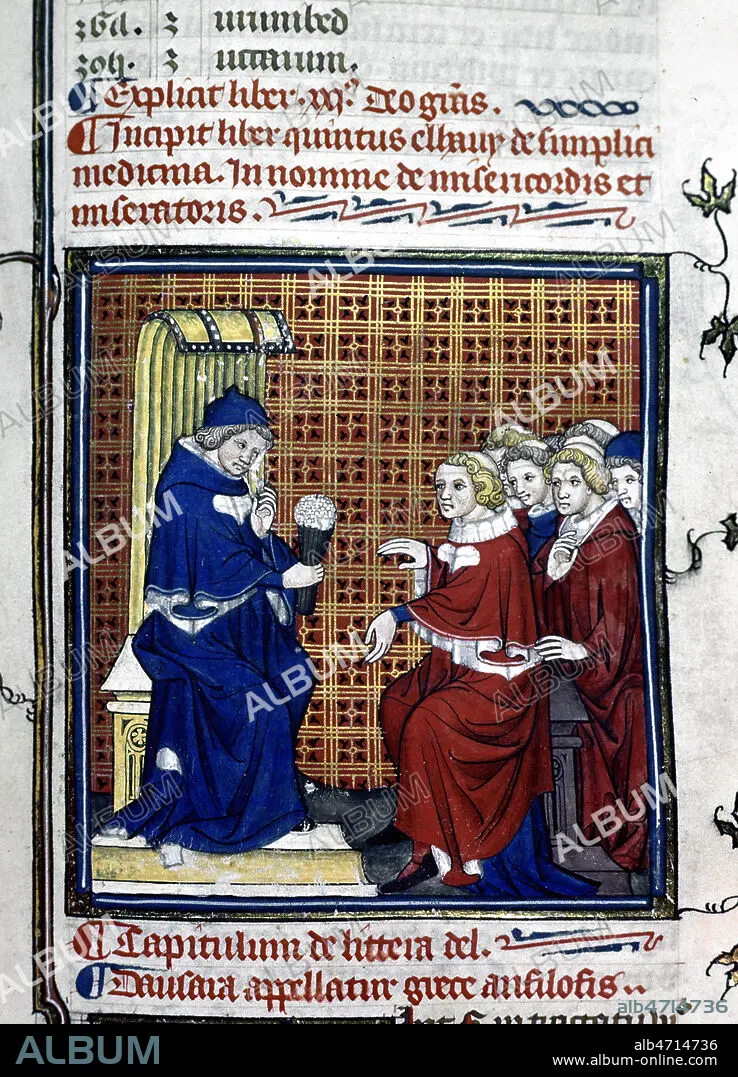 zoh. z uctaium.
Explicit liber. xxs. Deo gr̃as.
Incipit liber quintus elhauy de simplici
medicina. In nomine de misericordis et
miseratoris.
Capitulum de littera del.
Dausara appellatur grece anfilofis..
alb4714736
ALBUM
alb4714736
www.album-online.com